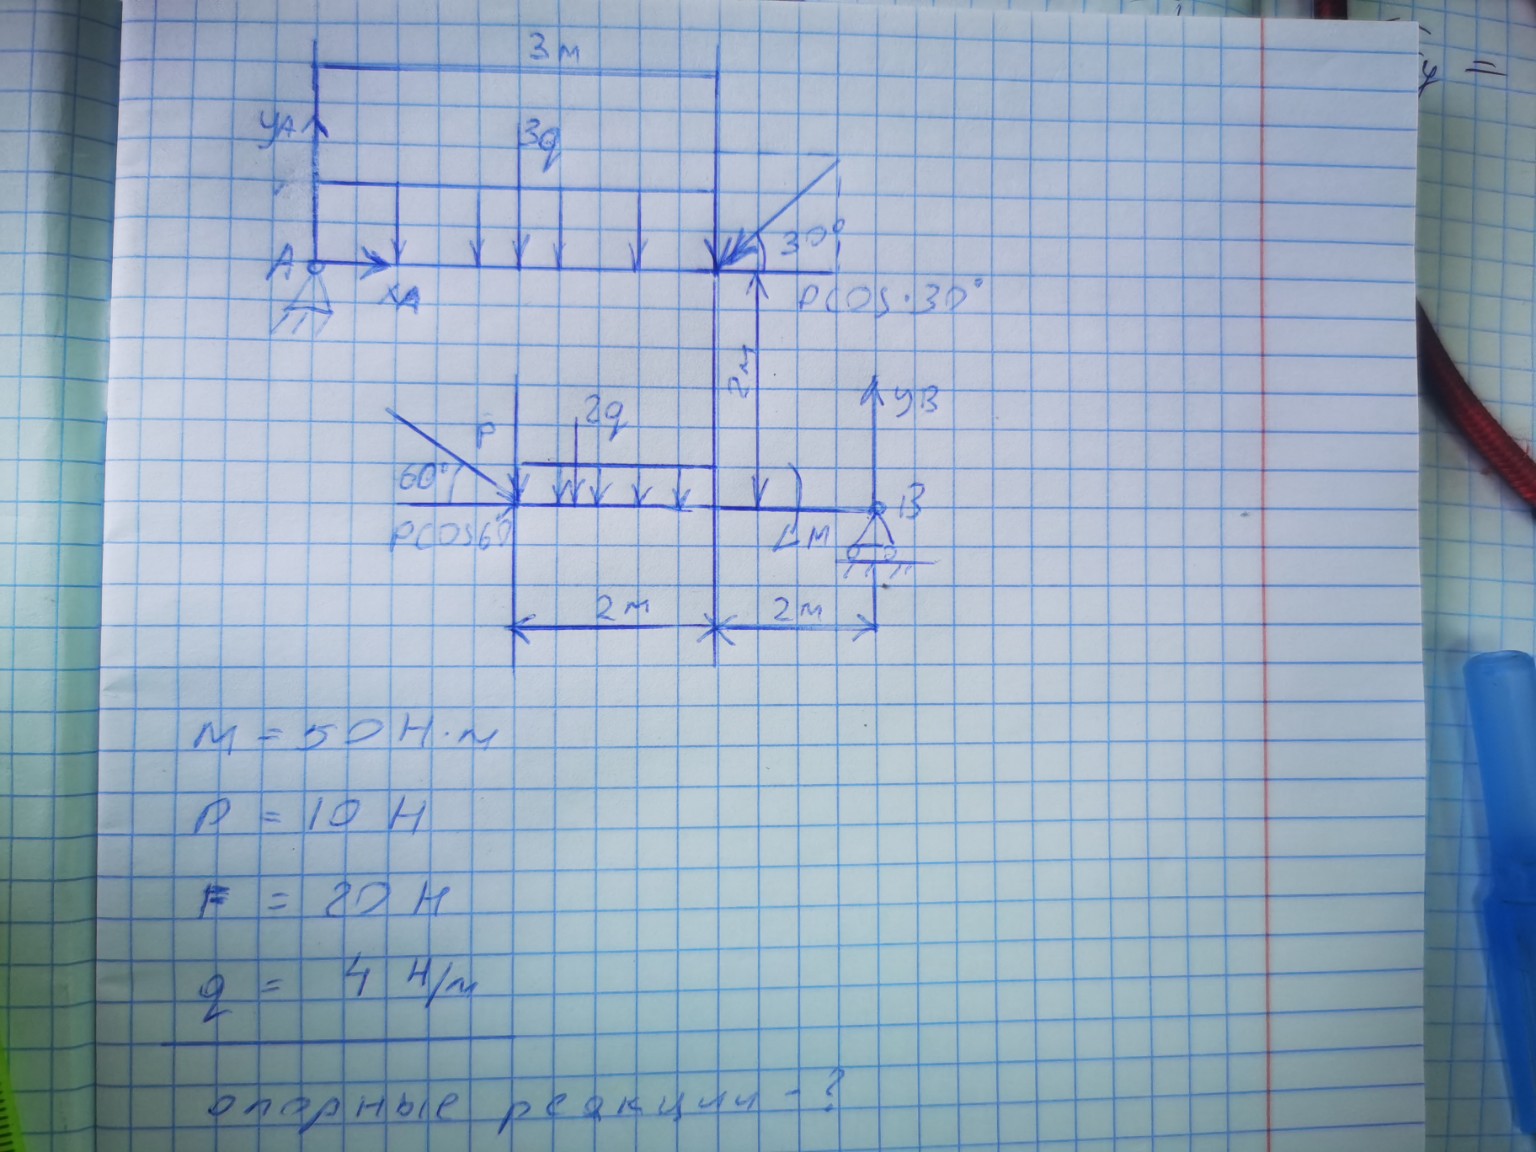 3м
yA
3q
A
xA
30°
Pcos·30°
2м
yB
2q
P
60°
Pcos60
B
M
2м
2м
M = 50 Н·м
P = 10 Н
F = 20 Н
q = 4 Н/м
опорные реакции - ?